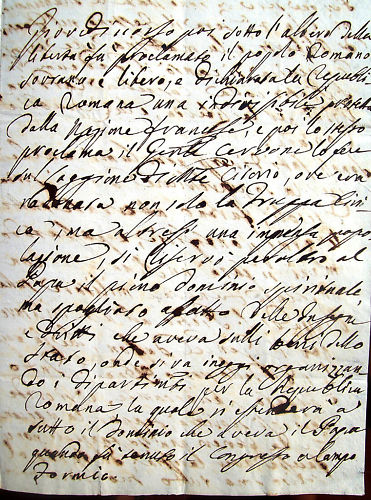 Giovedì scorso poi sotto l'albero della
libertà fù proclamato il popolo Romano
sovrano e libero, e dichiarata la Repubbli
ca Romana una indivisibile protetta
dalla Nazione francese, e poi lo stesso
proclama il Genle Cervone lo fece
sul Monte Citorio, ove era
radunata non solo la Truppa Civi
ca, ma altresì una immensa popo
lazione, si riservò peraltro al
Papa il pieno dominio spirituale
ma spogliato affatto delle
e Dritti che aveva sulli beni dello
Stato, onde si va in oggi organizzan
do i Dipartimti per la Repubblica
Romana la quale si estenderà a
tutto il Dominio che aveva il Papa
quando fù tenuto il Congresso a Campo
Formio.